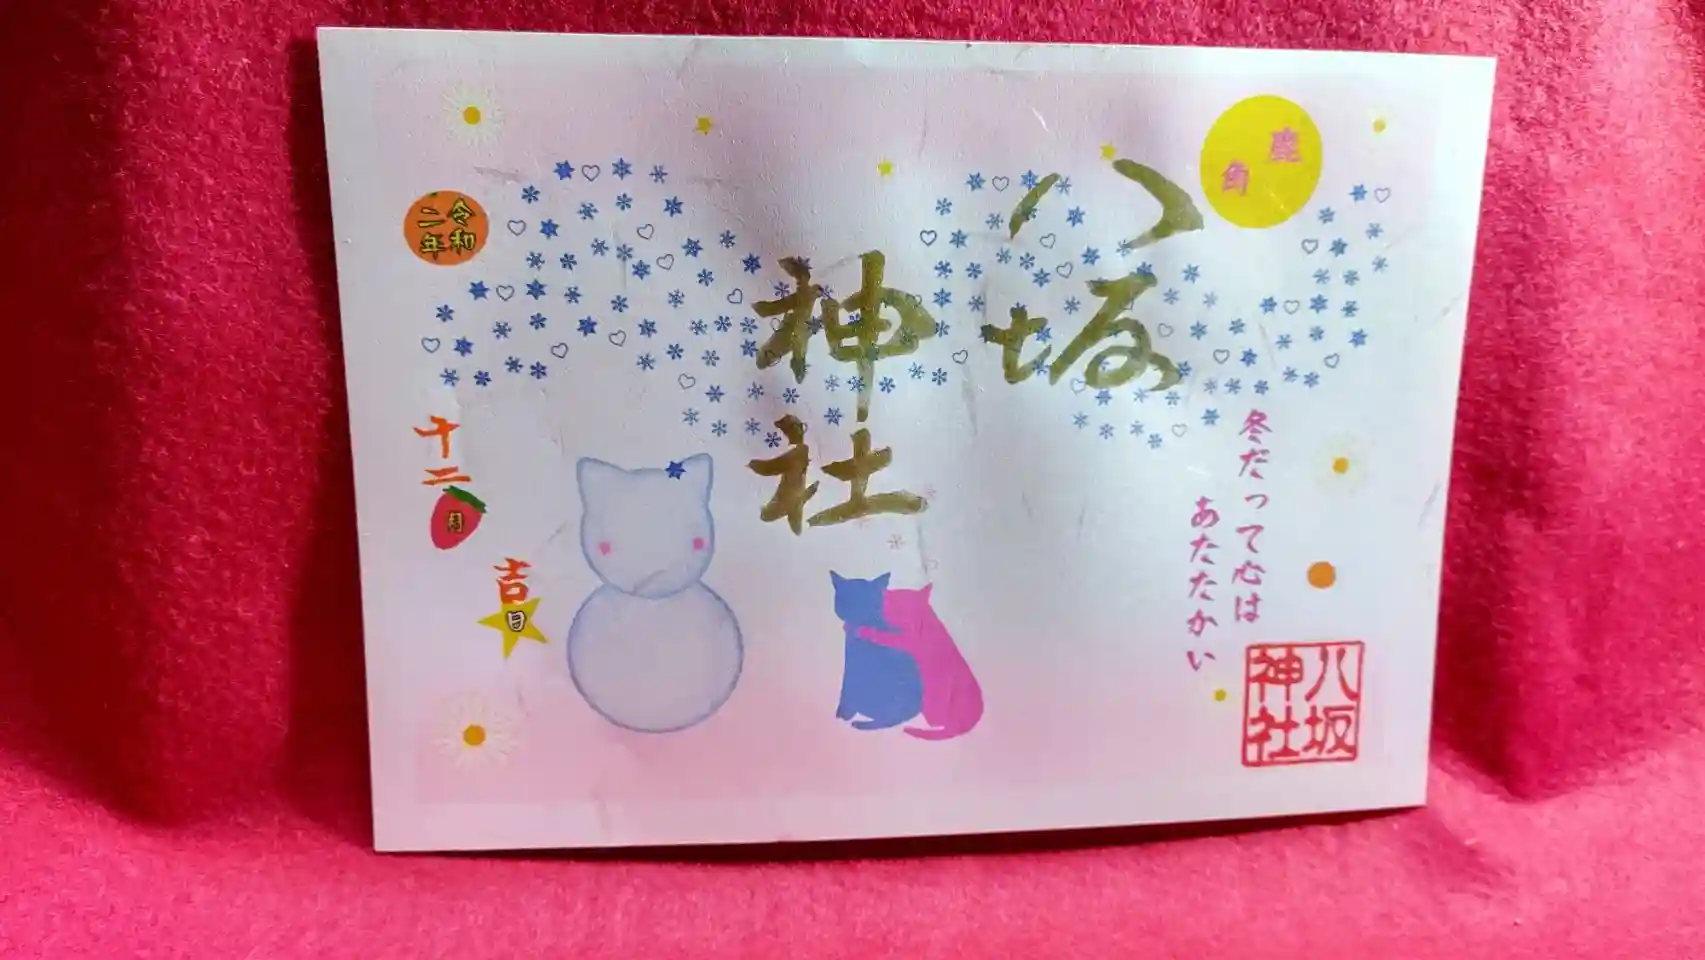 鹿角
八坂
神社
冬だって心は
あたたかい
八坂
神社
令和
二年
十二月
吉日